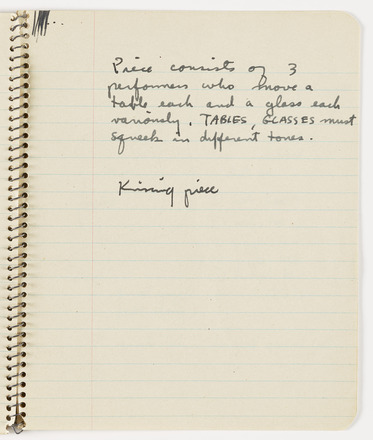 Piece consists of 3
performers who move a
table each and a glass each
variously. TABLES, GLASSES must
squeek in different tones.
Kissing piece